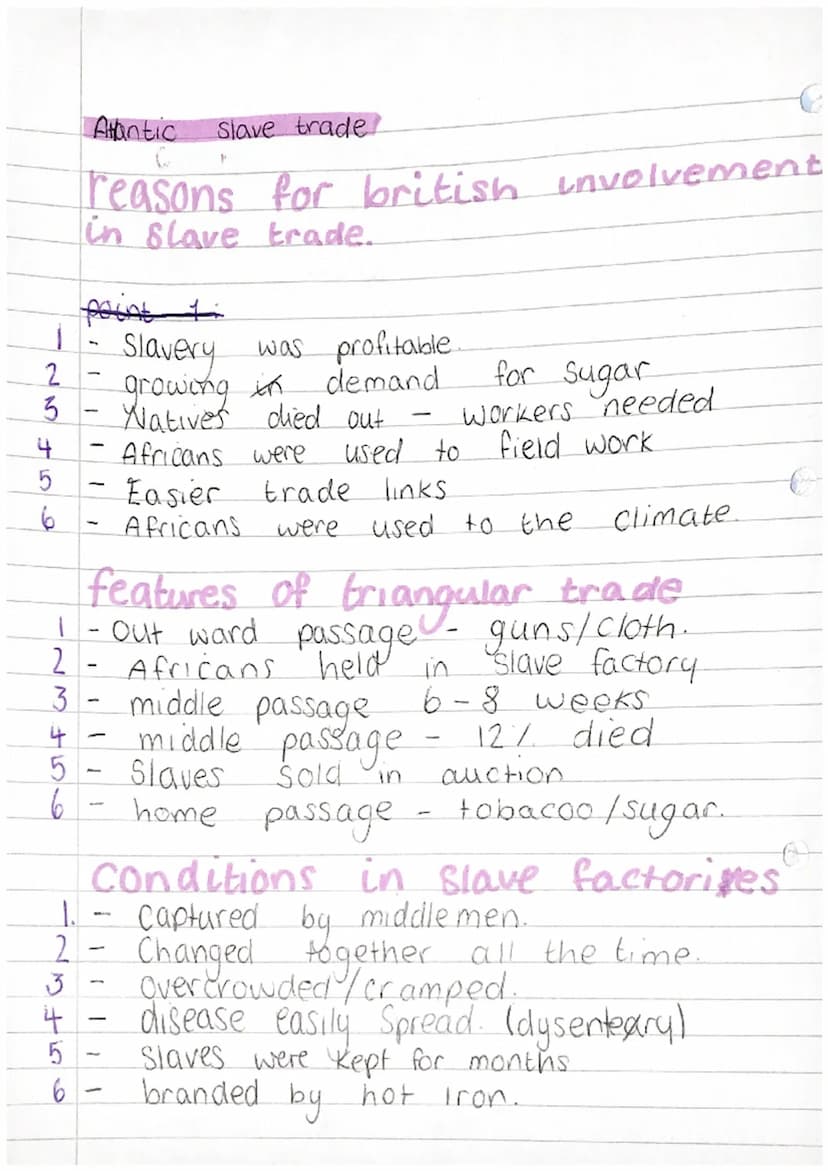 Atlantic slave trade
reasons for british involvement
in slave trade.
point 1:
1 - Slavery was profitable.
2 - growing in demand for sugar
3 - Natives died out - workers needed
4 - Africans were used to field work
5 - Easier trade links
6 - Africans were used to the climate.
features of triangular trade
1 - Out ward passage - guns/cloth.
2 - Africans held in slave factory
3 - middle passage 6-8 weeks
4 - middle passage - 12% died
5 - Slaves sold in auction
6 - home passage - tobacoo/sugar.
Conditions in slave factories
1. - captured by middlemen.
2 - Changed together all the time.
3 - overcrowded/cramped.
4 - disease easily spread. (dysenteary)
5 - Slaves were kept for months
6 - branded by hot iron.